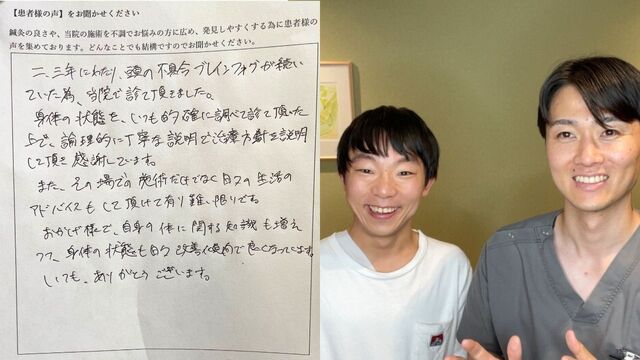 【患者様の声】をお聞かせください
鍼灸の良さや、当院の施術を不調でお悩みの方に広め、発見しやすくする為に患者様の
声を集めております。どんなことでも結構ですのでお聞かせください。
二、三年にわたり、頭の不具合ブレインフォグが続い
ていた為、当院で診て頂きました。
身体の状態を、いつも的確に調べて診て頂いた
上で、論理的に丁寧な説明で治療方針を説明
して頂き感謝しています。
また、その場での施術だけでなく日々の生活の
アドバイスもして頂けて有り難い限りです。
おかげ様で、自身の体に関する知識も増え
つつ、身体の状態も日々改善傾向で良くなっています。
いつも、ありがとうございます。